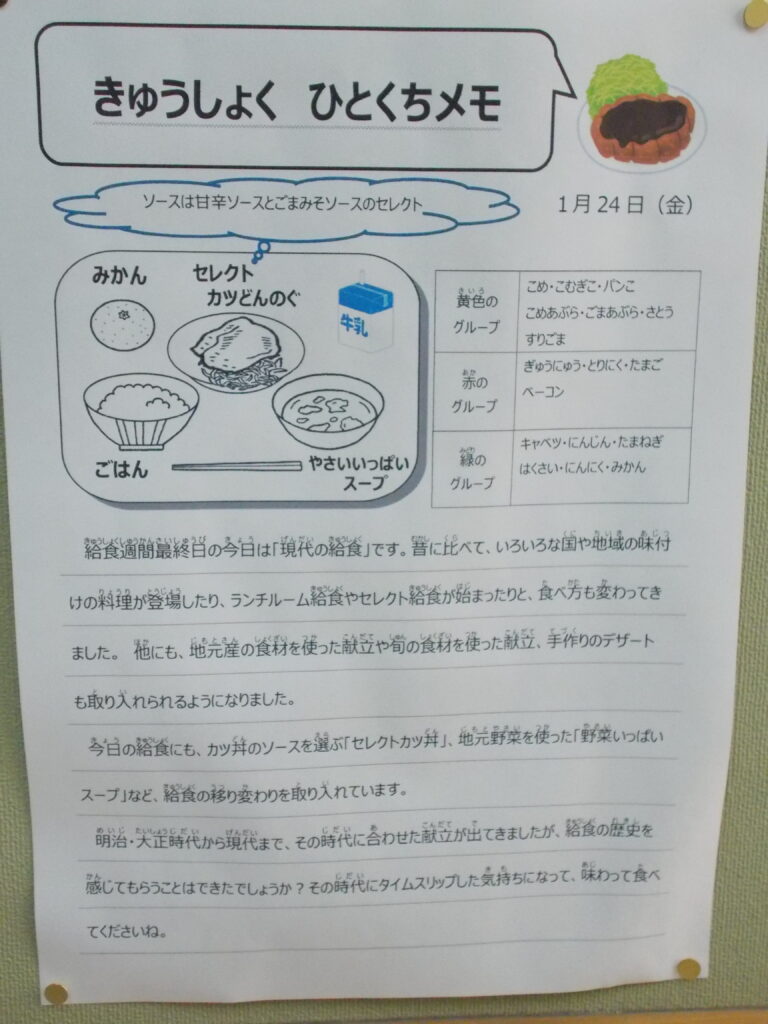 きゅうしょく ひとくちメモ
ソースは甘辛ソースとごまみそソースのセレクト
1月24日(金)
みかん
セレクト
カツどんのぐ
牛乳
ごはん
やさいいっぱい
スープ
黄色の
グループ
こめ・こむぎこ・パンこ
こめあぶら・ごまあぶら・さとう
すりごま
赤の
グループ
ぎゅうにゅう・とりにく・たまご
ベーコン
緑の
グループ
キャベツ・にんじん・たまねぎ
はくさい・にんにく・みかん
給食週間最終日の今日は「現代の給食」です。昔に比べて、いろいろな国や地域の味付
けの料理が登場したり、ランチルーム給食やセレクト給食が始まったりと、食べ方も変わってき
ました。 他にも、地元産の食材を使った献立や旬の食材を使った献立、手作りのデザート
も取り入れられるようになりました。
今日の給食にも、カツ丼のソースを選ぶ「セレクトカツ丼」、地元野菜を使った「野菜いっぱい
スープ」など、給食の移り変わりを取り入れています。
明治・大正時代から現代まで、その時代に合わせた献立が出てきましたが、給食の歴史を
感じてもらうことはできたでしょうか?その時代にタイムスリップした気持ちになって、味わって食べ
てくださいね。